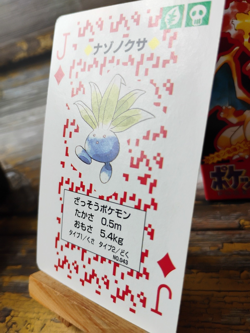 J
ナゾノクサ
ざっそうポケモン
たかさ 0.5m
おもさ 5.4kg
タイプ1/くさ タイプ2/どく
NO.043
J
ポケ